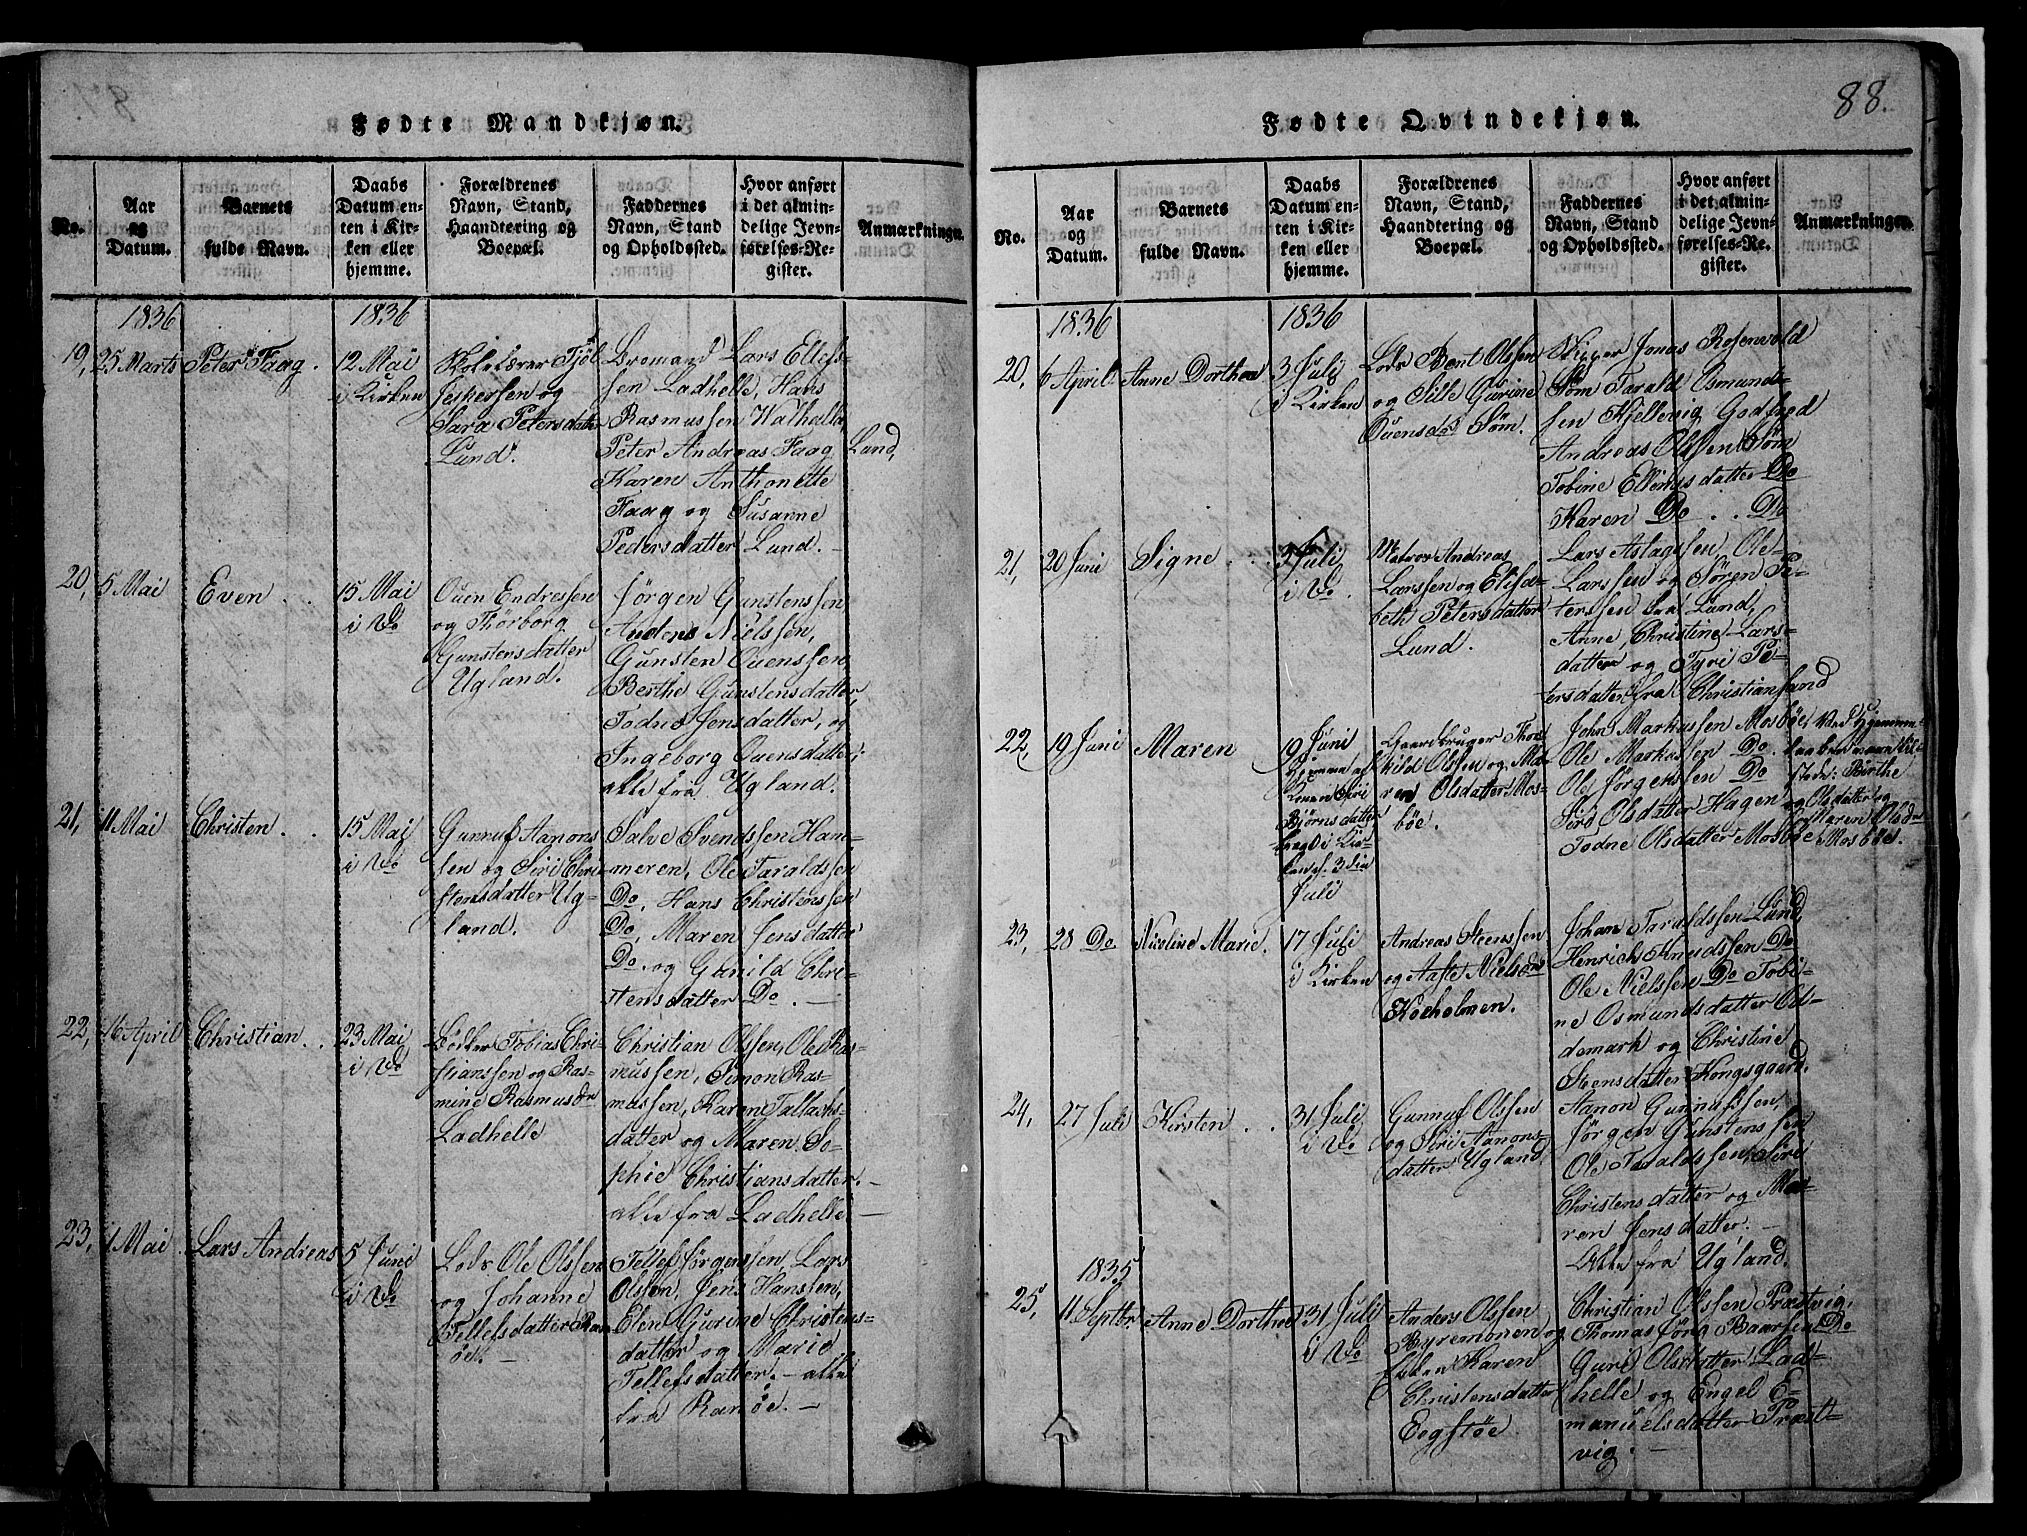 88.
Fødte Mandkjøn.
No.
Aar
og
Datum.
Barnets
fulde Navn.
Daabs
Datum en-
ten i Kir-
ken eller
hjemme.
Forældrenes
Navn, Stand,
Haandtering og
Boepæl.
Faddernes
Navn, Stand
og Opholdssted.
Hvor anført
i det almin-
delige Jevn-
førelses-Re-
gister.
Anmærkninger.
1836
1836
19, 25 Marts
Peter Faag.
12 Mai
i Kirken
Jeskersen og
Sara Petersdatter
Lund.
Lars Ellefs-
sen Ladhelle, Hans
Rasmussen Walhella,
Peter Andreas Faag Lund,
Karen Anthonette
Faag og Susanne
Pedersdatter Lund.
20, 5 Mai
Even
15 Mai
i Do
Ouen Endressen
og Thorborg
Gunstensdatter
Ugland.
Jørgen Gunstenssen
Audens Nielssen,
Gunsten Ouenssen,
Berthe Gunstensdatter,
Todne Jensdatter, og
Ingeborg Ouensdatter;
alle fra Ugland.
21, 11 Mai
Christen.
15 Mai
i Do
Gunnuf Aanons-
sen og Siri Chri-
stensdatter Ug-
land.
Salve Svendssen Ham-
meren, Ole Taraldssen
Do, Hans Christenssen
Do, Maren Jensdatter
Do. og Gunild Chri-
stensdatter Do.
22, 16 April
Christian.
23 Mai
i Do
Bødker Tobias Chri-
stianssen og Ras-
mine Rasmusdr
Ladhelle
Christian Olssen, Ole Ras-
mussen, Simon Ras-
mussen, Karen Tallachs-
datter og Maren So-
phie Christiansdatter.
alle fra Ladhelle
23, 1 Mai
Lars Andreas
5 Juni
i Do
Lods Ole Olssen
og Johanne
Tellefsdatter Ran-
öe.
Tellef Jørgenssen, Lars
Olssøn, Jens Hanssen,
Elen Gurine Christens-
datter og Marie
Tellefsdatter. - alle
fra Ranöe.
Fødte Qvindekjøn.
No.
Aar
og
Datum.
Barnets
fulde Navn.
Daabs
Datum en-
ten i Kir-
ken eller
hjemme.
Forældrenes
Navn, Stand,
Haandtering og
Boepæl.
Faddernes
Navn, Stand
og Opholdssted.
Hvor anført
i det almin-
delige Jevn-
førelses-Re-
gister.
Anmærkninger.
1836
1836
20, 6 April
Anne Dorthea
3 Juli
i Kirken
Lods Bent Olssen
og Sille Gurine
Ouensdr Søm.
Skipper Jonas Rosenvold
Søm Tarald Osmund-
sen Kjellevig Godfred
Andreas Olssen Søm
Tobine Ellevsdatter Do
Karen Do . . Do
21, 20 Juni
Signe
3 Juli
i Do.
Matros Andreas
Larssen og Elisa-
beth Petersdatter
Lund.
Lars Aslagssen, Ole
Larssen og Søren Pe-
terssen fra Lund,
Anne Christine Lars-
datter og Tyri Pe-
tersdatter fra Christiansand
22, 19 Juni
Maren
19 Juni
Hjemme af
Konen Siri
Bjørnsdatter
bragt i Kir-
ken d. 3 die
Juli
Gaardbruger Thor-
kild Olssen og Ma-
ren Olsdatter Mos-
böe.
John Markussen Mosböe,
Ole Markussen Do.
Ole Jørgenssen Do
Siri Olsdatter Hagen og
Todne Olsdatter Mosböe.
Ved Hjemme-
daaben vare til-
stede: Birthe
Olsdatter og
Maren Olsdr
Mosböe.
23, 28 Do
Nicoline Marie.
17 Juli
i Kirken
Andreas Steenssen
og Aase Nielsdr
Kocholmen.
Johan Taraldssen Lund,
Henrich Knudssen Do
Ole Nielssen Do Tobi-
ne Osmundsdatter Od-
demark og Christine
Steensdatter Kongsgaard.
24, 27 Juli
Kirsten
31 Juli
i Do
Gunnuf Olssen
og Siri Aanons-
datter Ugland
Aanon Gunnufssen,
Jørgen Gunstenssen
Ole Taraldssen, Siri
Christensdatter og Ma-
ren Jensdatter.
Alle fra Ugland.
1835
25, 11 Septbr.
Anne Dorthea
31 Juli
i Do
Anders Olssen
Byremonen og
Karen
Christensdatter
Eegstöe
Christian Olssen Præstvig,
Thomas Jørg Baarsen Do
Guri Olsdatter Lad-
helle og Engel E-
manuelsdatter Præst-
vig.